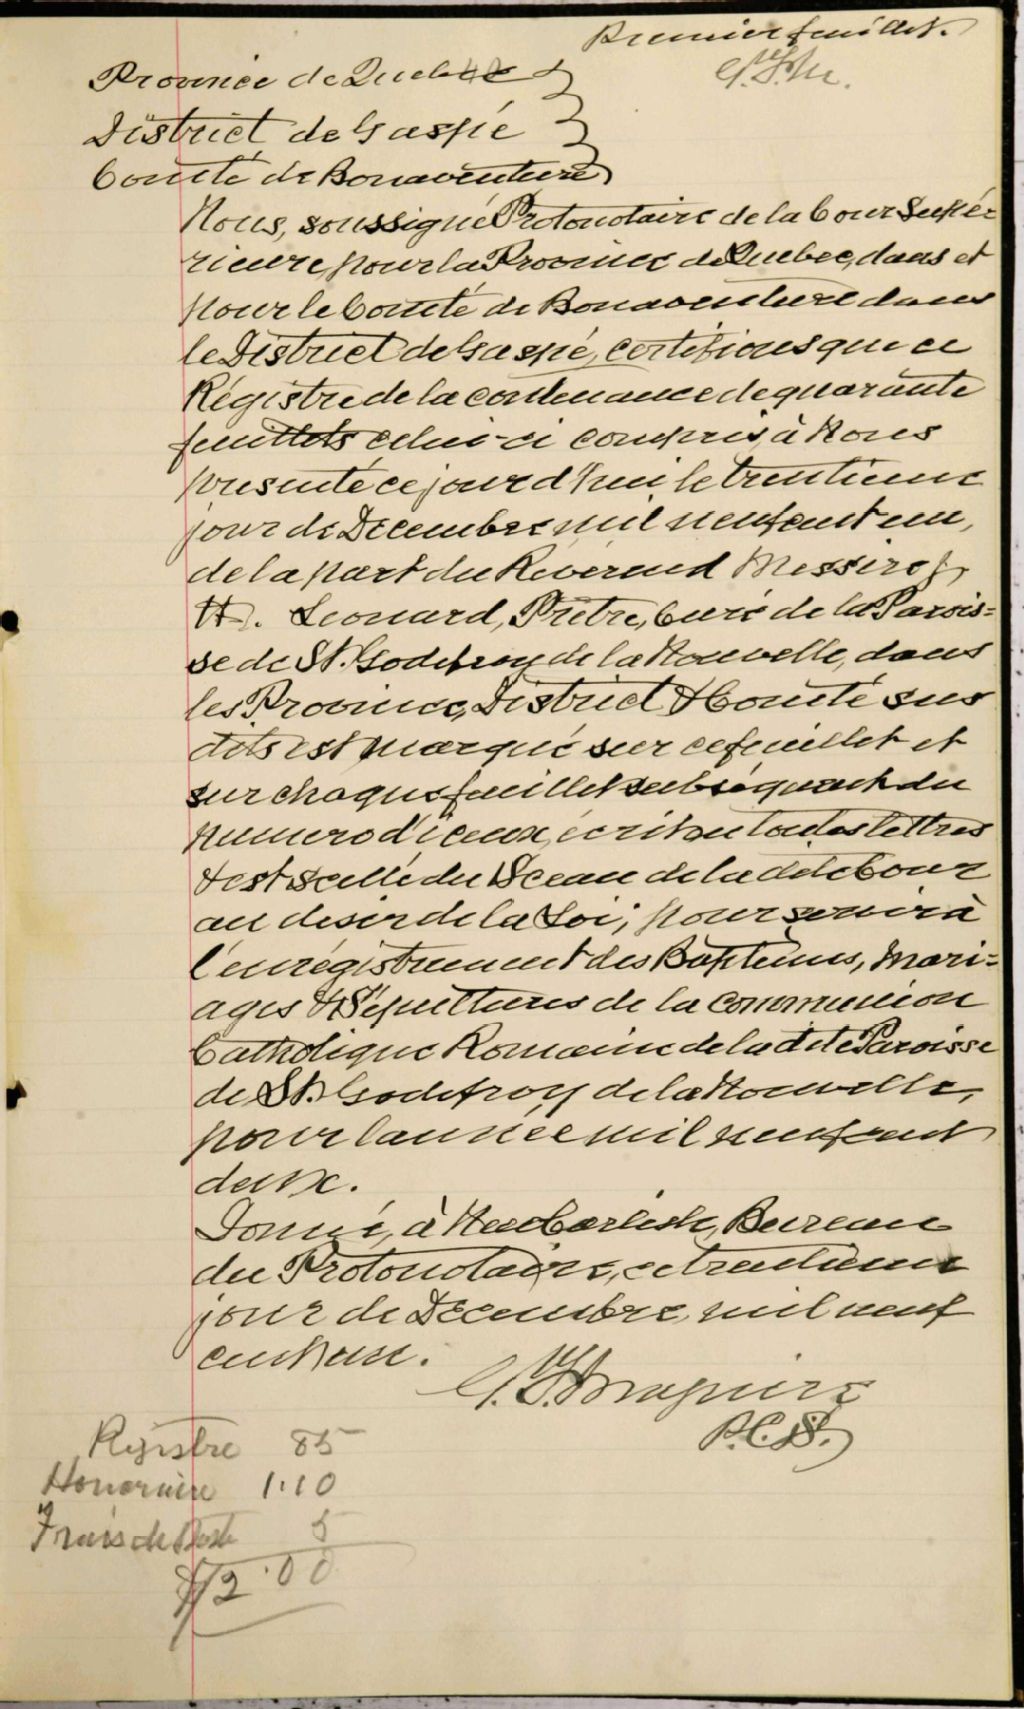 Premier feuillet.
Province de Quebec
District de Gaspé
Comté de Bonaventure
Nous, soussigné Protonotaire de la Cour Supé-
rieure, pour la Province de Quebec, dans et
pour le Comté de Bonaventure dans
le District de Gaspé, certifions que ce
Régistre de la contenance de quarante
feuillets celui-ci compris, à Nous
présenté ce jourd'hui le trentieme
jour de Décembre mil neuf cent un,
de la part du Révérend Messire J.
H. Leonard, Prêtre, Curé de la Parois=
se de St. Godefroy de la Nouvelle, dans
les Province, District & Comté sus
dits est marqué sur ce feuillet et
sur chaque feuillet subséquent du
numero d'iceux, écrit en toutes lettres
& est scellé du Sceau de la dite Cour
au desir de la Loi; pour servir à
l'enrégistrement des Baptêmes, Mari=
ages & Sépultures de la communion
Catholique Romaine de la dite Paroisse
de St. Godefroy de la Nouvelle,
pour l'année mil neuf cent
deux.
Donné, à New Carlisle, Bureau
du Protonotaire, ce trentieme
jour de Décembre, mil neuf
cent un.
P.C.S.
Registre 85
Honoraire 1.10
Frais de Poste 5
$2.00